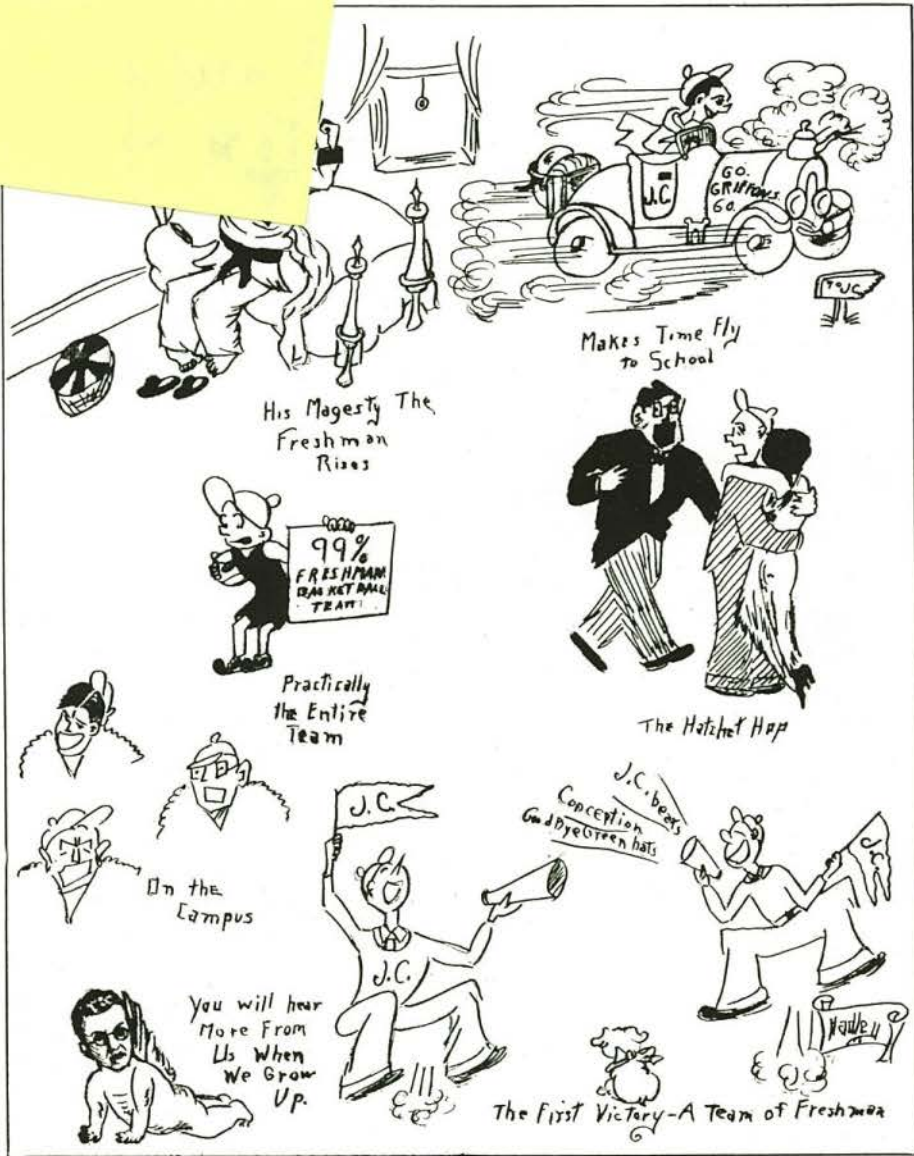 J.C.
GO.
GRIFFONS.
GO.
TO J.C.
Makes Time Fly
to School
His Magesty The
Freshman
Rises
99%
FRESHMAN
BASKET BALL
TEAM
Practically
the Entire
Team
The Hatchet Hop
On the
Campus
J.C.
J.C. beats
Conception
Good Bye Green hats
J.C.
J.C.
You will hear
More From
Us When
We Grow
Up.
The First Victory-A Team of Freshman